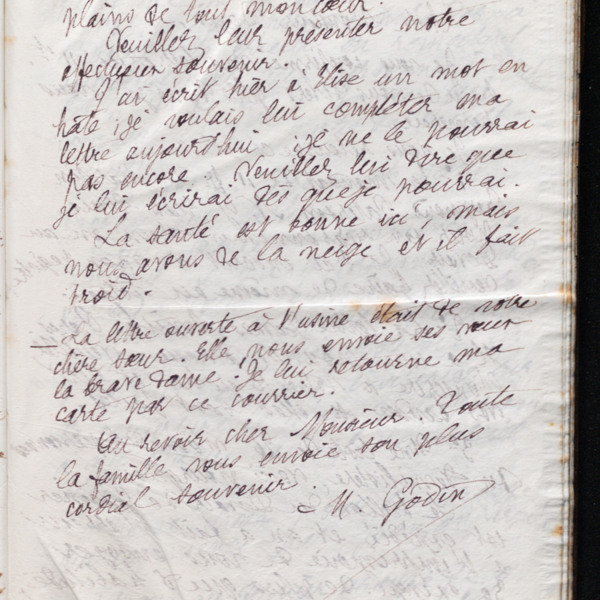 plains de tout mon cœur.
Veuillez leur présenter notre
affectueux souvenir.
J'ai écrit hier à Elise un mot en
hâte ; je voulais lui compléter ma
lettre aujourd'hui ; je ne le pourrai
pas encore. Veuillez lui dire que
je lui écrirai dès que je pourrai.
La santé est bonne ici, mais
nous avons de la neige et il fait
froid.
— La lettre ouverte à l'usine était de votre
chère sœur. Elle nous envoie ses vœux
la brave dame. Je lui retourne ma
carte par ce courrier.
Au revoir cher Monsieur. Toute
la famille vous envoie son plus
cordial souvenir.
M. Godin